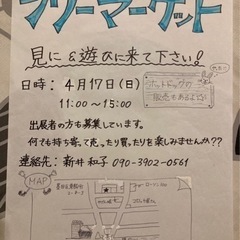 フリーマーケット
見に&遊びに来て下さい!
日時: 4月17日(日)
11:00〜15:00
ホットドッグの
販売もあるよ!!
出展者の方も募集しています。
何でも持ち寄って売ったり買ったりを楽しみませんか??
連絡先: 新井 和子 090-3902-0561
MAP